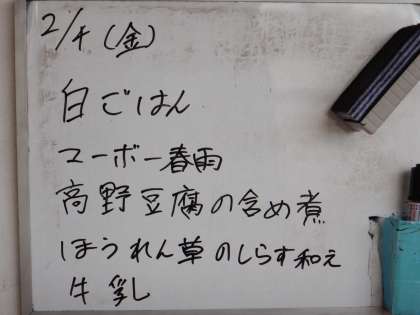 2/4(金)
白ごはん
マーボー春雨
高野豆腐の含め煮
ほうれん草のしらす和え
牛乳